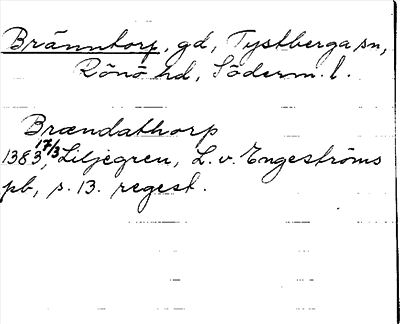 Bränntorp, gd, Tystberga sn,
Rönö hd, Söderm. l.
Brændathorp
1383 17/3, Liljegren, L. v. Engeströms
pb, s. 13. regest.